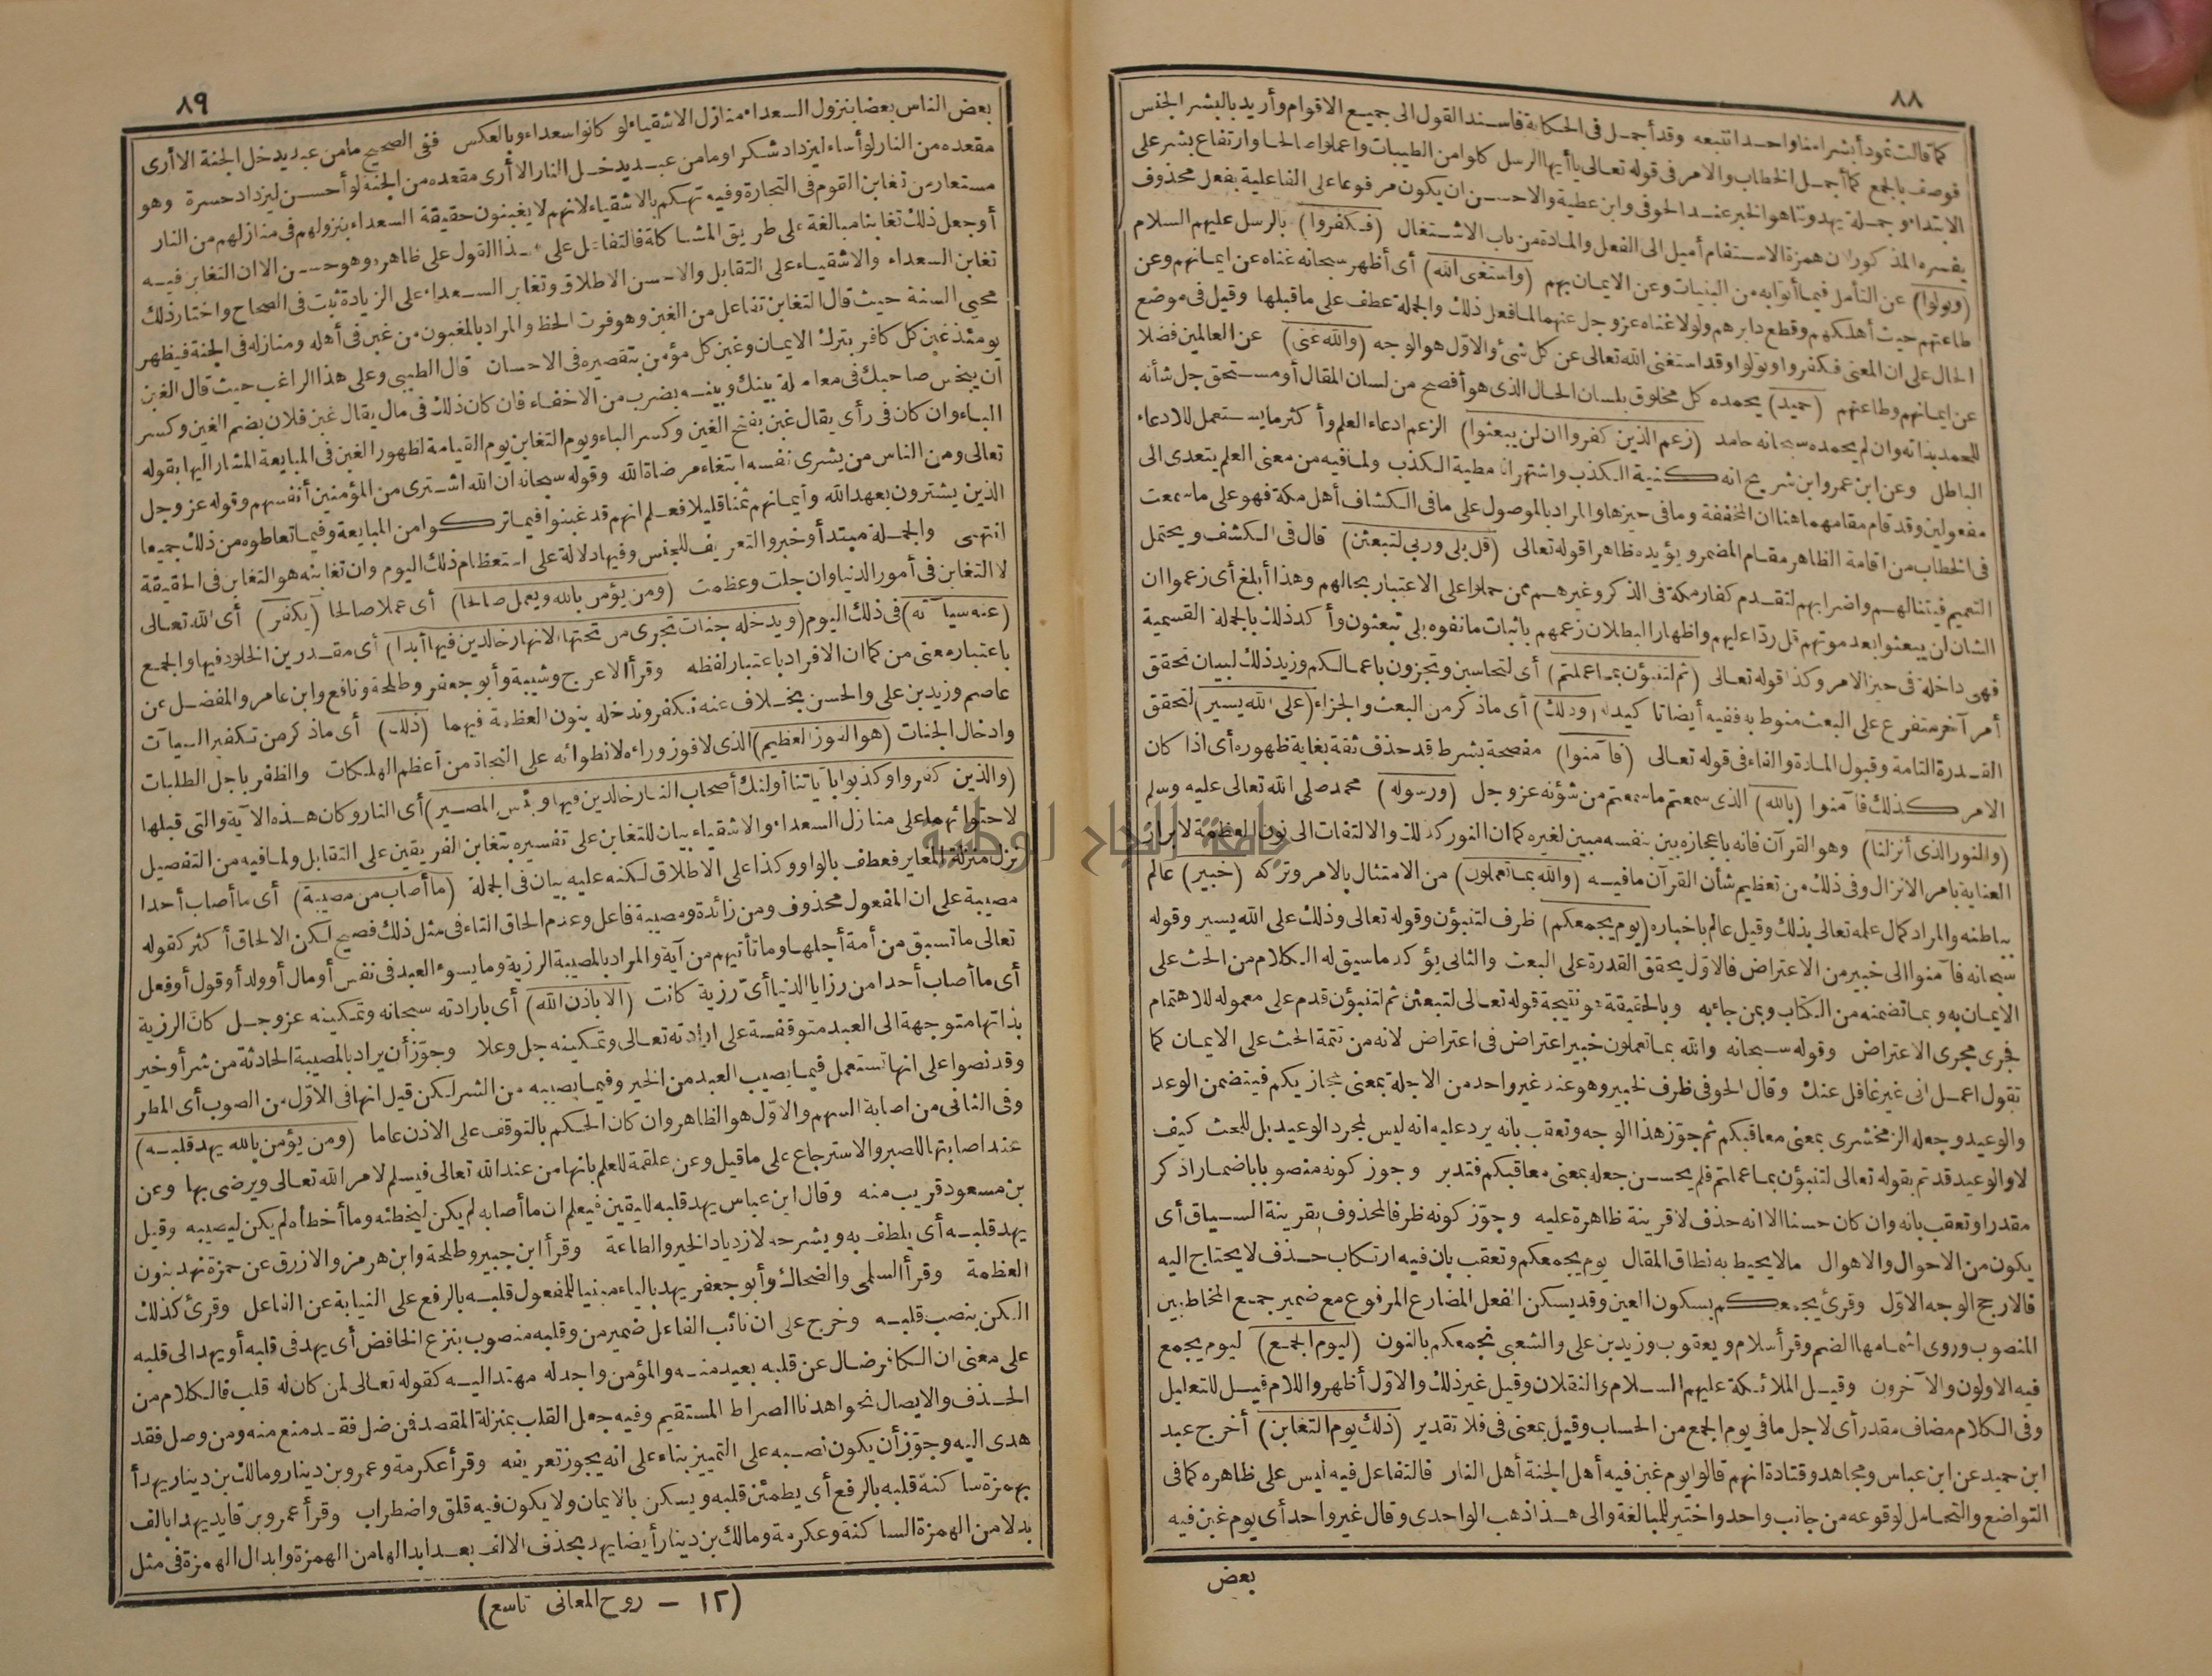 ٨٨
كما قالت ثمود أبشرا منا واحدا نتبعه وقد أجمل فى الحكاية فاسند القول الى جميع الاقوام وأريد بالبشر الجنس
فوصف بالجمع كما أجمل الخطاب والامر فى قوله تعالى يا أيها الرسل كلوا من الطيبات واعملوا صالحا وارتفاع بشر على
الابتداء وجملة يهدوننا هو الخبر عند الحوفى وابن عطية والاحسن ان يكون مرفوعا على الفاعلية بفعل محذوف
يفسره المذكور لان همزة الاستفهام أميل الى الفعل والمادة من باب الاشتغال (فكفروا) بالرسل عليهم السلام
(وتولوا) عن التأمل فيما أتوا به من البينات وعن الايمان بهم (واستغنى الله) أى أظهر سبحانه غناه عن ايمانهم وعن
طاعتهم حيث أهلكهم وقطع دابرهم ولولا غناه عز وجل عنهما لما فعل ذلك والجملة عطف على ما قبلها وقيل فى موضع
الحال على ان المعنى فكفروا وتولوا وقد استغنى الله تعالى عن كل شئ والاوّل هو الوجه (والله غنى) عن العالمين فضلا
عن ايمانهم وطاعتهم (حميد) يحمده كل مخلوق بلسان الحال الذى هو أفصح من لسان المقال أو مستحق جل شأنه
للحمد بذاته وان لم يحمده سبحانه حامد (زعم الذين كفروا ان لن يبعثوا) الزعم ادعاء العلم وأكثر ما يستعمل للادعاء
الباطل وعن ابن عمر وابن شريح انه كنية الكذب واشتهر انه مطية الكذب ولما فيه من معنى العلم يتعدى الى
مفعولين وقد قام مقامهما هنا ان المخففة وما فى حيزها والمراد بالموصول على ما فى الكشاف أهل مكة فهو على ما سمعت
فى الخطاب من اقامة الظاهر مقام المضمر ويؤيده ظاهرا قوله تعالى (قل بلى وربى لتبعثن) قال فى الكشف ويحتمل
التعميم فيتناولهم واضرابهم لتقدم كفار مكة فى الذكر وغيرهم ممن حملوا على الاعتبار بحالهم وهذا أبلغ أى زعموا ان
الشان لن يبعثوا بعد موتهم قل ردّا عليهم واظهارا لبطلان زعمهم باثبات ما نفوه بلى تبعثون وأكد ذلك بالجملة القسمية
فهى داخلة فى حيز الامر وكذا قوله تعالى (ثم لتنبؤن بما عملتم) أى لتحاسبن وتجزون باعمالكم وزيد ذلك لبيان تحقق
أمر آخر متفرع على البعث منوط به ففيه أيضا تأكيد له (وذلك) أى ما ذكر من البعث والجزاء (على الله يسير) لتحقق
القدرة التامة وقبول المادة والفاء فى قوله تعالى (فآمنوا) مفصحة بشرط قد حذف ثقة بغاية ظهوره أى اذا كان
الامر كذلك فآمنوا (بالله) الذى سمعتم ما سمعتم من شؤنه عز وجل (ورسوله) محمد صلى الله تعالى عليه وسلم
(والنور الذى أنزلنا) وهو القرآن فانه باعجازه بين بنفسه مبين لغيره كما ان النور كذلك والالتفات الى نون العظمة لابراز
العناية بامر الانزال وفى ذلك من تعظيم شأن القرآن ما فيه (والله بما تعملون) من الامتثال بالامر وتركه (خبير) عالم
بباطنه والمراد كمال علمه تعالى بذلك وقيل عالم باخباره (يوم يجمعكم) ظرف لتنبؤن وقوله تعالى وذلك على الله يسير وقوله
سبحانه فآمنوا الى خبير من الاعتراض فالاوّل يحقق القدرة على البعث والثانى يؤكد ما سيق له الكلام من الحث على
الايمان به وبما تضمنه من الكتاب وبمن جاء به وبالحقيقة هو نتيجة قوله تعالى لتبعثن ثم لتنبؤن قدم على معموله للاهتمام
فجرى مجرى الاعتراض وقوله سبحانه والله بما تعملون خبير اعتراض فى اعتراض لانه من تتمة الحث على الايمان كما
تقول اعمل انى غير غافل عنك وقال الحوفى ظرف لخبير وهو عند غير واحد من الاجلة بمعنى مجازيكم فيتضمن الوعد
والوعيد وجعله الزمخشرى بمعنى معاقبكم ثم جوّز هذا الوجه وتعقب بانه يرد عليه انه ليس لمجرد الوعيد بل للحث كيف
لا والوعيد قد تم بقوله تعالى لتنبؤن بما عملتم فلم يحسن جعله بمعنى معاقبكم فتدبر وجوز كونه منصوبا باضمار اذكر
مقدرا وتعقب بانه وان كان حسنا الا انه حذف لا قرينة ظاهرة عليه وجوّز كونه ظرفا لمحذوف بقرينة السياق أى
يكون من الاحوال والاهوال مالا يحيط به نطاق المقال يوم يجمعكم وتعقب بان فيه ارتكاب حذف لا يحتاج اليه
فالارجح الوجه الاوّل وقرئ يجمعكم بسكون العين وقد يسكن الفعل المضارع المرفوع مع ضمير جمع المخاطبين
المنصوب وروى اشمامها الضم وقرأ سلام ويعقوب وزيد بن على والشعبى نجمعكم بالنون (ليوم الجمع) ليوم يجمع
فيه الاولون والآخرون وقيل الملائكة عليهم السلام والثقلان وقيل غير ذلك والاوّل أظهر واللام قيل للتعليل
وفى الكلام مضاف مقدر أى لاجل ما فى يوم الجمع من الحساب وقيل بمعنى فى فلا تقدير (ذلك يوم التغابن) أخرج عبد
ابن حميد عن ابن عباس ومجاهد وقتادة انهم قالوا يوم غبن فيه أهل الجنة أهل النار فالتفاعل فيه ليس على ظاهره كما فى
التواضع والتحامل لوقوعه من جانب واحد واختير للمبالغة والى هذا ذهب الواحدى وقال غير واحد أى يوم غبن فيه
بعض
٨٩
بعض الناس بعضا بنزول السعداء منازل الاشقياء لو كانوا سعداء وبالعكس ففى الصحيح ما من عبد يدخل الجنة الا أرى
مقعده من النار لو أساء ليزداد شكرا وما من عبد يدخل النار الا أرى مقعده من الجنة لو أحسن ليزداد حسرة وهو
مستعار من تغابن القوم فى التجارة وفيه تهكم بالاشقياء لانهم لا يغبنون حقيقة السعداء بنزولهم فى منازلهم من النار
أو جعل ذلك تغابنا مبالغة على طريق المشاكلة فالتفاعل على هذا القول على ظاهره وهو حسن الا ان التغابن فيه
تغابن السعداء والاشقياء على التقابل والاحسن الاطلاق وتغابن السعداء على الزيادة ثبت فى الصحاح واختار ذلك
محيى السنة حيث قال التغابن تفاعل من الغبن وهو فوت الحظ والمراد بالمغبون من غبن فى أهله ومنازله فى الجنة فيظهر
يومئذ غبن كل كافر بترك الايمان وغبن كل مؤمن بتقصيره فى الاحسان قال الطيبى وعلى هذا الراغب حيث قال الغبن
ان يبخس صاحبك فى معاملة بينك وبينه بضرب من الاخفاء فان كان ذلك فى مال يقال غبن فلان بضم الغين وكسر
الباء وان كان فى رأى يقال غبن بفتح الغين وكسر الباء ويوم التغابن يوم القيامة لظهور الغبن فى المبايعة المشار اليها بقوله
تعالى ومن الناس من يشرى نفسه ابتغاء مرضاة الله وقوله سبحانه ان الله اشترى من المؤمنين أنفسهم وقوله عز وجل
الذين يشترون بعهد الله وأيمانهم ثمنا قليلا فعلم انهم قد غبنوا فيما تركوا من المبايعة وفيما تعاطوه من ذلك جميعا
انتهى والجملة مبتدأ وخبر والتعريف للجنس وفيها دلالة على استعظام ذلك اليوم وان تغابنه هو التغابن فى الحقيقة
لا التغابن فى أمور الدنيا وان جلت وعظمت (ومن يؤمن بالله ويعمل صالحا) أى عملا صالحا (يكفر) أى الله تعالى
(عنه سيآته) فى ذلك اليوم (ويدخله جنات تجرى من تحتها الانهار خالدين فيها أبدا) أى مقدرين الخلود فيها والجمع
باعتبار معنى من كما ان الافراد باعتبار لفظه وقرأ الاعرج وشيبة وأبو جعفر وطلحة ونافع وابن عامر والمفضل عن
عاصم وزيد بن على والحسن بخلاف عنه نكفر وندخله بنون العظمة فيهما (ذلك) أى ما ذكر من تكفير السيآت
وادخال الجنات (هو الفوز العظيم) الذى لا فوز وراءه لانطوائه على النجاة من أعظم الهلكات والظفر باجل الطلبات
(والذين كفروا وكذبوا بآياتنا أولئك أصحاب النار خالدين فيها وبئس المصير) أى النار وكان هذه الآية والتى قبلها
لاحتوائهما على منازل السعداء والاشقياء بيان للتغابن على تفسيره بتغابن الفريقين على التقابل ولما فيه من التفصيل
نزل منزلة المغاير فعطف بالواو وكذا على الاطلاق لكنه عليه بيان فى الجملة (ما أصاب من مصيبة) أى ما أصاب أحدا
مصيبة على ان المفعول محذوف ومن زائدة ومصيبة فاعل وعدم الحاق التاء فى مثل ذلك فصيح لكن الالحاق أكثر كقوله
تعالى ما تسبق من أمة أجلها وما تأتيهم من آية والمراد بالمصيبة الرزية وما يسوء العبد فى نفس أو مال أو ولد أو قول أو فعل
أى ما أصاب أحدا من رزايا الدنيا أىّ رزية كانت (الا باذن الله) أى بارادته سبحانه وتمكينه عز وجل كان الرزية
بذاتها متوجهة الى العبد متوقفة على ارادته تعالى وتمكينه جل وعلا وجوّز أن يراد بالمصيبة الحادثة من شر أو خير
وقد نصوا على انها تستعمل فيما يصيب العبد من الخير وفيما يصيبه من الشر لكن قيل انها فى الاوّل من الصوب أى المطر
وفى الثانى من اصابة السهم والاوّل هو الظاهر وان كان الحكم بالتوقف على الاذن عاما (ومن يؤمن بالله يهد قلبه)
عند اصابتها للصبر والاسترجاع على ما قيل وعن علقمة للعلم بانها من عند الله تعالى فيسلم لامر الله تعالى ويرضى بها وعن
بن مسعود قريب منه وقال ابن عباس يهد قلبه لليقين فيعلم ان ما أصابه لم يكن ليخطئه وما أخطأه لم يكن ليصيبه وقيل
يهد قلبه أى يلطف به ويشرحه لازدياد الخير والطاعة وقرأ ابن جبير وطلحة وابن هرمز والازرق عن حمزة نهد بنون
العظمة وقرأ السلمى والضحاك وأبو جعفر يهد بالياء مبنيا للمفعول قلبه بالرفع على النيابة عن الفاعل وقرئ كذلك
لكن بنصب قلبه وخرج على ان نائب الفاعل ضمير من وقلبه منصوب بنزع الخافض أى يهد فى قلبه أو يهد الى قلبه
على معنى ان الكافر ضال عن قلبه بعيد منه والمؤمن واجد له مهتد اليه كقوله تعالى لمن كان له قلب فالكلام من
الحذف والايصال نحو اهدنا الصراط المستقيم وفيه جعل القلب بمنزلة المقصد فمن ضل فقد منع منه ومن وصل فقد
هدى اليه وجوّز أن يكون نصبه على التمييز بناء على انه يجوز تعريفه وقرأ عكرمة وعمرو بن دينار ومالك بن دينار يهدأ
بهمزة ساكنة قلبه بالرفع أى يطمئن قلبه ويسكن بالايمان ولا يكون فيه قلق واضطراب وقرأ عمرو بن قايد يهدا بالف
بدلا من الهمزة الساكنة وعكرمة ومالك بن دينار أيضا يهد بحذف الالف بعد ابدالها من الهمزة وابدال الهمزة فى مثل
(١٢ – روح المعانى تاسع)
جامعة النجاح الوطنية